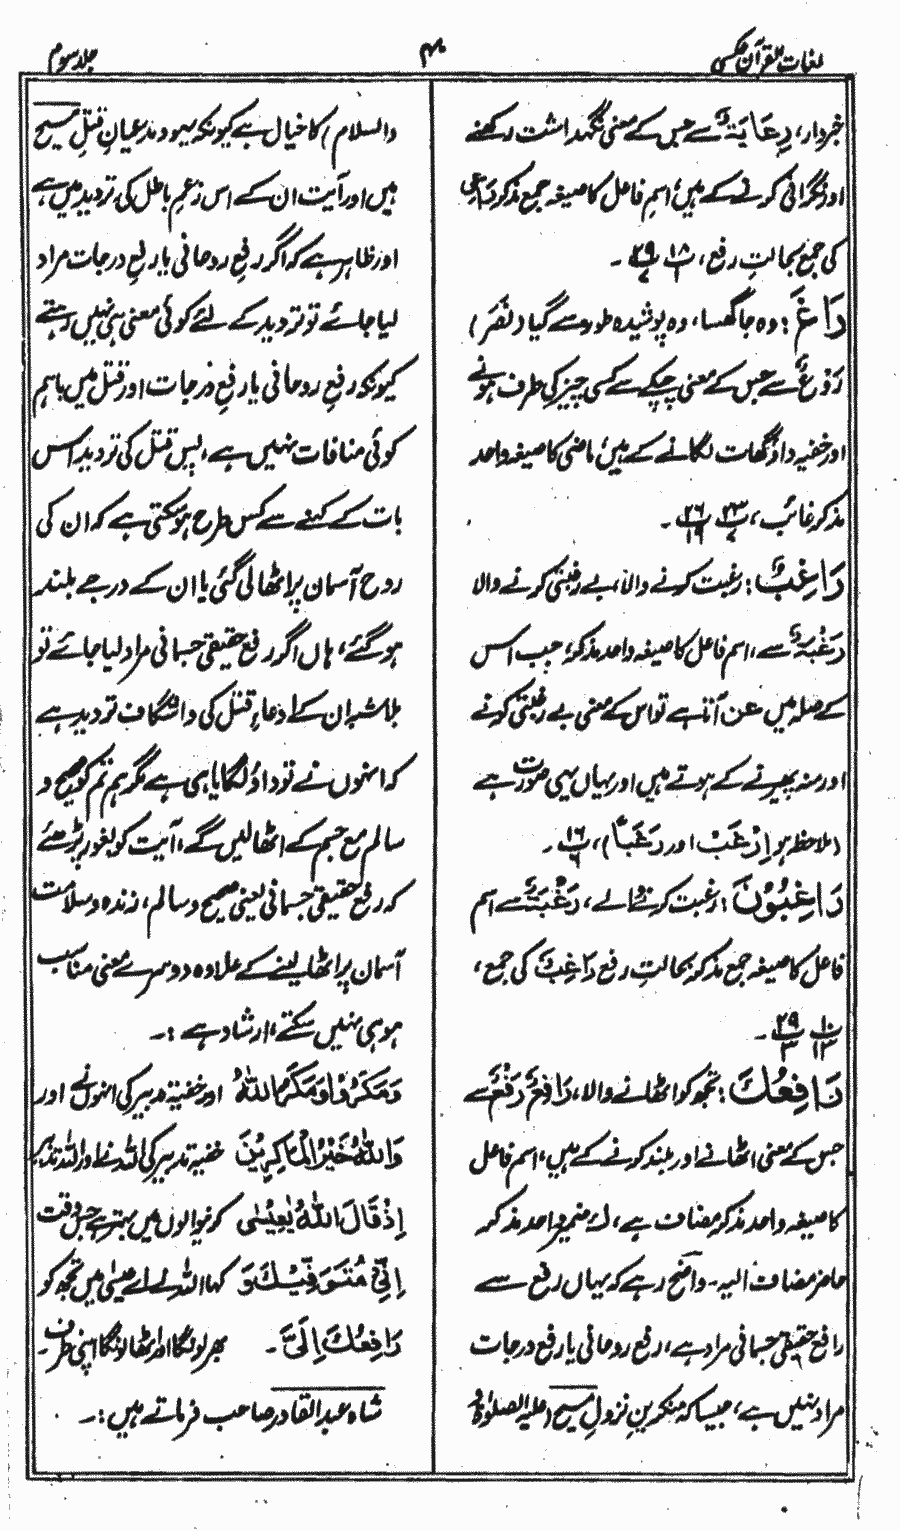 لغات القرآن عکسی
۴
جلد سوم
خبردار، رِعَایَۃٌ سے جس کے معنی نگہداشت رکھنے
اور نگرانی کرنے کے ہیں، اسمِ فاعل کا صیغہ جمع مذکر رَاعِی
کی جمع بحالتِ رفع، ۱۸/۱ ۲۹/۷ ۔
رَاغَ: وہ جا گھسا، وہ پوشیدہ طور سے گیا (نَصَرَ)
رَوْغٌ سے جس کے معنی چپکے سے کسی چیز کی طرف ہونے
اور خفیہ داؤ گھات لگانے کے ہیں، ماضی کا صیغہ واحد
مذکر غائب، ۲۳/۷ ۲۶/۱۹ ۔
رَاغِبٌ: رغبت کرنے والا، بے رغبتی کرنے والا
رَغْبَۃٌ سے، اسم فاعل کا صیغہ واحد مذکر، جب اس
کے صلہ میں عن آتا ہے تو اس کے معنی بے رغبتی کرنے
اور منہ پھیرنے کے ہوتے ہیں اور یہاں یہی صورت ہے
(ملاحظہ ہو اِرْغَبْ اور رَغَبًا)، ۱۶/۶ ۔
رَاغِبُوْنَ: رغبت کرنے والے، رَغْبَۃٌ سے اسم
فاعل کا صیغہ جمع مذکر بحالتِ رفع رَاغِبٌ کی جمع،
۱۰/۱۳ ۲۹/۳ ۔
رَافِعُكَ: تجھ کو اٹھانے والا، رَافِعٌ، رَفْعٌ سے
جس کے معنی اٹھانے اور بلند کرنے کے ہیں، اسم فاعل
کا صیغہ واحد مذکر مضاف ہے، ك ضمیر واحد مذکر
حاضر مضاف الیہ۔ واضح رہے کہ یہاں رفع سے
رافع حقیقی جسمانی مراد ہے، رفع روحانی یا رفع درجات
مراد نہیں ہے، جیسا کہ منکرینِ نزولِ مسیح (علیہ الصلوٰۃ
والسلام) کا خیال ہے کیونکہ یہود مدعیانِ قتلِ مسیح
ہیں اور آیت ان کے اس زعمِ باطل کی تردید میں ہے
اور ظاہر ہے کہ اگر رفعِ روحانی یا رفعِ درجات مراد
لیا جائے تو تردید کے لئے کوئی معنی ہی نہیں رہتے
کیونکہ رفعِ روحانی یا رفعِ درجات اور قتل میں باہم
کوئی منافات نہیں ہے، پس قتل کی تردید اس
بات کے کہنے سے کس طرح ہو سکتی ہے کہ ان کی
روح آسمان پر اٹھا لی گئی یا ان کے درجے بلند
ہو گئے، ہاں اگر رفع حقیقی جسمانی مراد لیا جائے تو
بلاشبہ ان کے ادعاءِ قتل کی واشگاف تردید ہے
کہ انہوں نے تو داؤ لگایا ہی ہے مگر ہم تم کو صحیح و
سالم مع جسم کے اٹھا لیں گے، آیت کو بغور پڑھئے
کہ رفع حقیقی جسمانی یعنی صحیح و سالم، زندہ و سلامت
آسمان پر اٹھا لینے کے علاوہ دوسرے معنی مناسب
ہو ہی نہیں سکتے، ارشاد ہے :۔
وَمَكَرُوْا وَمَكَرَ اللّٰهُ اور خفیہ تدبیر کی انہوں نے اور
وَاللّٰهُ خَیْرُ الْمَاكِرِیْنَ خفیہ تدبیر کی اللہ نے اور اللہ تدبیر
اِذْ قَالَ اللّٰهُ یٰعِیْسٰی کرنیوالوں میں بہتر ہے جس وقت
اِنِّیْ مُتَوَفِّیْكَ وَ کہا اللہ نے اے عیسیٰ میں تجھ کو
رَافِعُكَ اِلَیَّ ۔ بھر لونگا اور اٹھا لونگا اپنی طرف۔
شاہ عبدالقادر صاحب فرماتے ہیں :۔